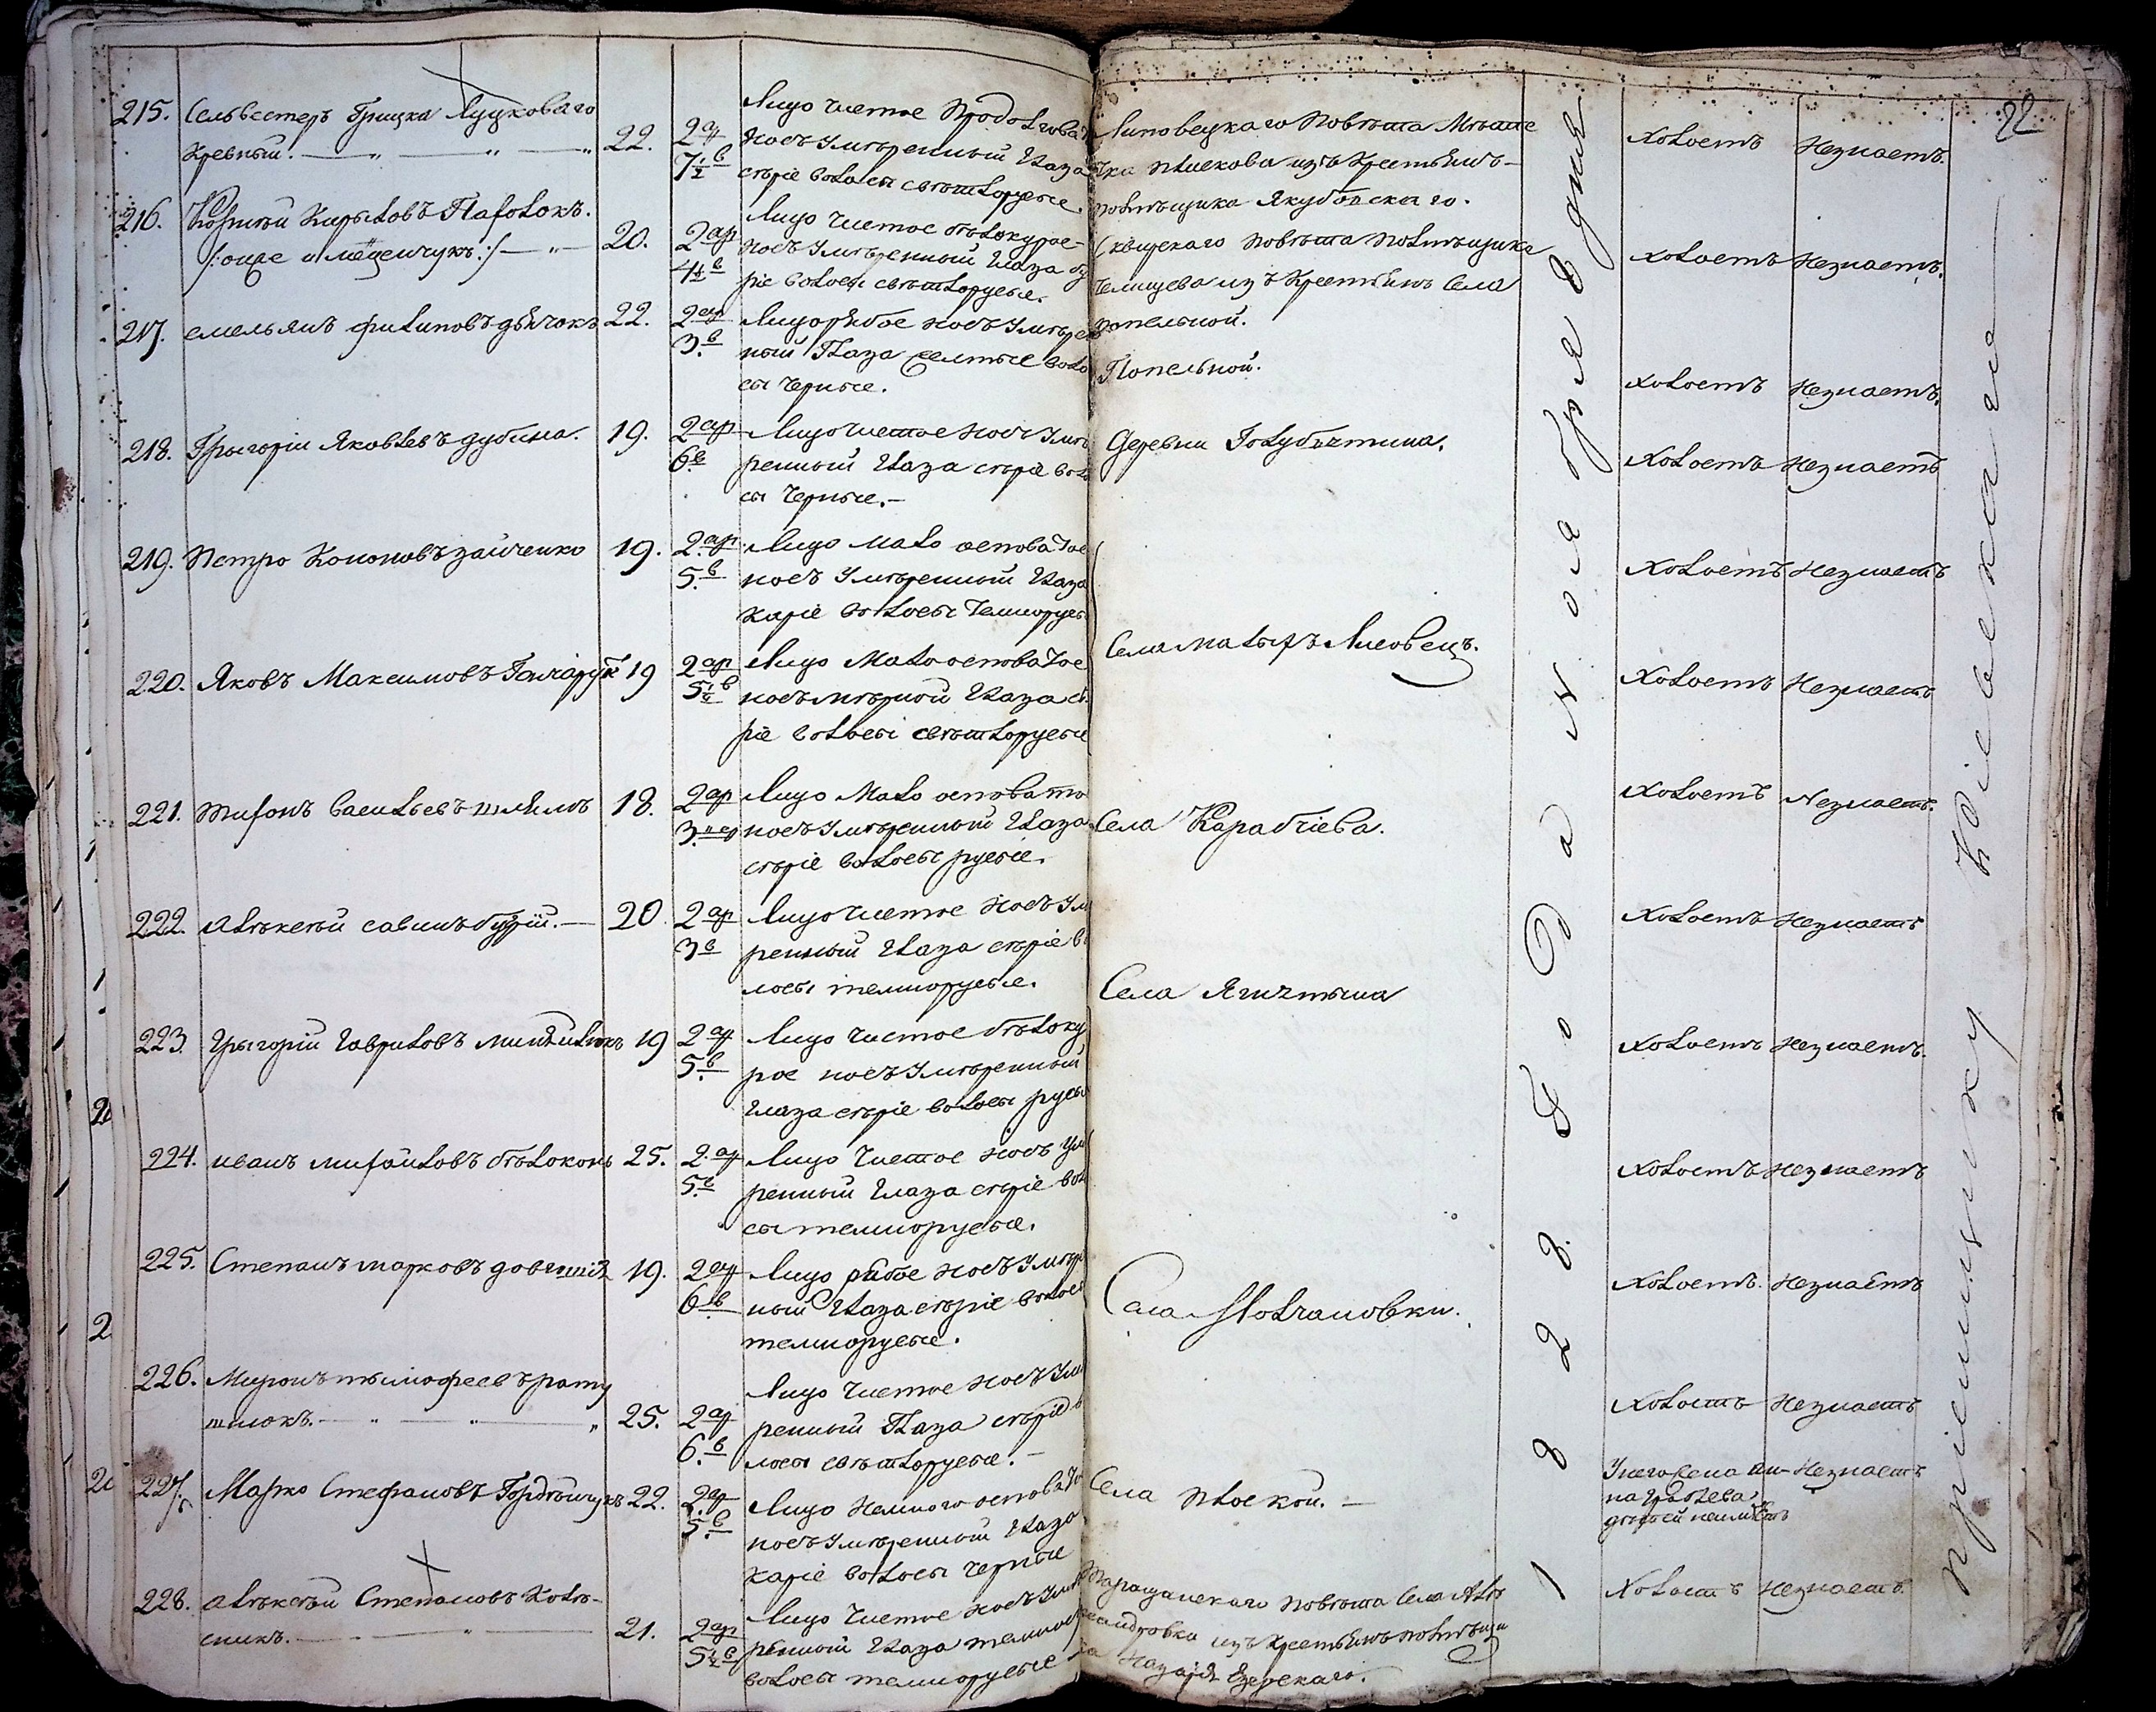 22
215. Сельвестеръ Грицка Луцковаго
Кревный. 22. 2 ар 7½ в
Лицо чистое продолгова
носъ умѣренный глаза
сѣріе волосы свѣтлорусые.
Липовецкаго повѣта Мѣсте
чка Плискова изъ крестьянъ
помѣщика Якубовскаго.
Холостъ Незнаетъ.
216. Кирыловъ
/:онже и 20. 2 ар 4½ в
Лицо чистое бѣлокурое
носъ умѣренный глаза сѣ
ріе волосы свѣтлорусые.
Сквирскаго повѣта помѣщика
изъ крестьянъ села
попельной.
Холостъ Незнаетъ.
217. емельянъ филиповъ дьячокъ 22. 2 ар 3 в
Лицо рябое носъ умѣрен
ный Глаза желтые воло
сы черные.
Попельной.
Холостъ Незнаетъ.
218. Григорій Яковлевъ дубина. 19. 2 ар 6 в
Лицо чистое носъ умѣ
ренный глаза сѣріе воло
сы черные.
Деревни Голубятина.
Холостъ Незнаетъ
219. Петро Кононовъ зайченко 19. 2 ар 5 в
Лицо мало осповатое
носъ умѣренный глаза
каріе волосы темнорусы
Холостъ Незнаетъ
220. Яковъ Максимовъ 19 2 ар 5½ в
Лицо мало осповатое
носъ мѣрный глаза сѣ
ріе волосы свѣтлорусые
Села малыхъ Лисовецъ.
Холостъ Незнаетъ
221. Тихонъ Васильевъ 18. 2 ар 3
Лицо мало осповато
носъ умѣренный глаза
сѣріе волосы русые.
Села Карабчіева.
Холостъ Незнаетъ.
222. Алѣксѣй савинъ 20 2 ар 3 в
Лицо чистое носъ ум
ренный глаза сѣріе в
лосы темнорусые.
Села Ягнятина
Холостъ Незнаетъ
223. Григорій Гавриловъ 19 2 ар 5 в
Лицо чистое бѣлоку
рое носъ умѣренный
глаза сѣріе волосы русы
Холостъ Незнаетъ.
224. иванъ михайловъ бѣлоконь 25. 2 ар 5 в
Лицо чистое носъ ум
ренный глаза сѣріе вол
сы темнорусые.
Холостъ Незнаетъ
225. Степанъ марковъ 19. 2 ар 6 в
Лицо рябое носъ умѣре
ный глаза сѣріе волосы
темнорусые.
Села Молчановки.
Холостъ. Незнаетъ
226. Миронъ тимофеевъ рату
шнюкъ. 25. 2 ар 6 в
Лицо чистое носъ ум
ренный Глаза сѣріе в
лосы свѣтлорусые.
Холостъ Незнаетъ
227. Марко Стефановъ Гордѣйчукъ 22. 2 ар 5 в
Лицо немного осповато
носъ умѣренный глаза
каріе волосы черные
Села Плоской.
У него жена Ан- Незнаетъ
на
дѣтей неимѣетъ
228. Алѣксѣй Степановъ Колѣ-
сникъ. 21. 2 ар 5½ в
Лицо чистое носъ умѣ
ренный глаза темносѣ
волосы темнорусые
Таращанскаго повѣта села Алѣ
ксандровки изъ крестьянъ помѣщи
ка Назарія Езерскаго.
Холостъ Незнаетъ
1823. Года Ноября 8 дня
пріемщику Кіевскаго